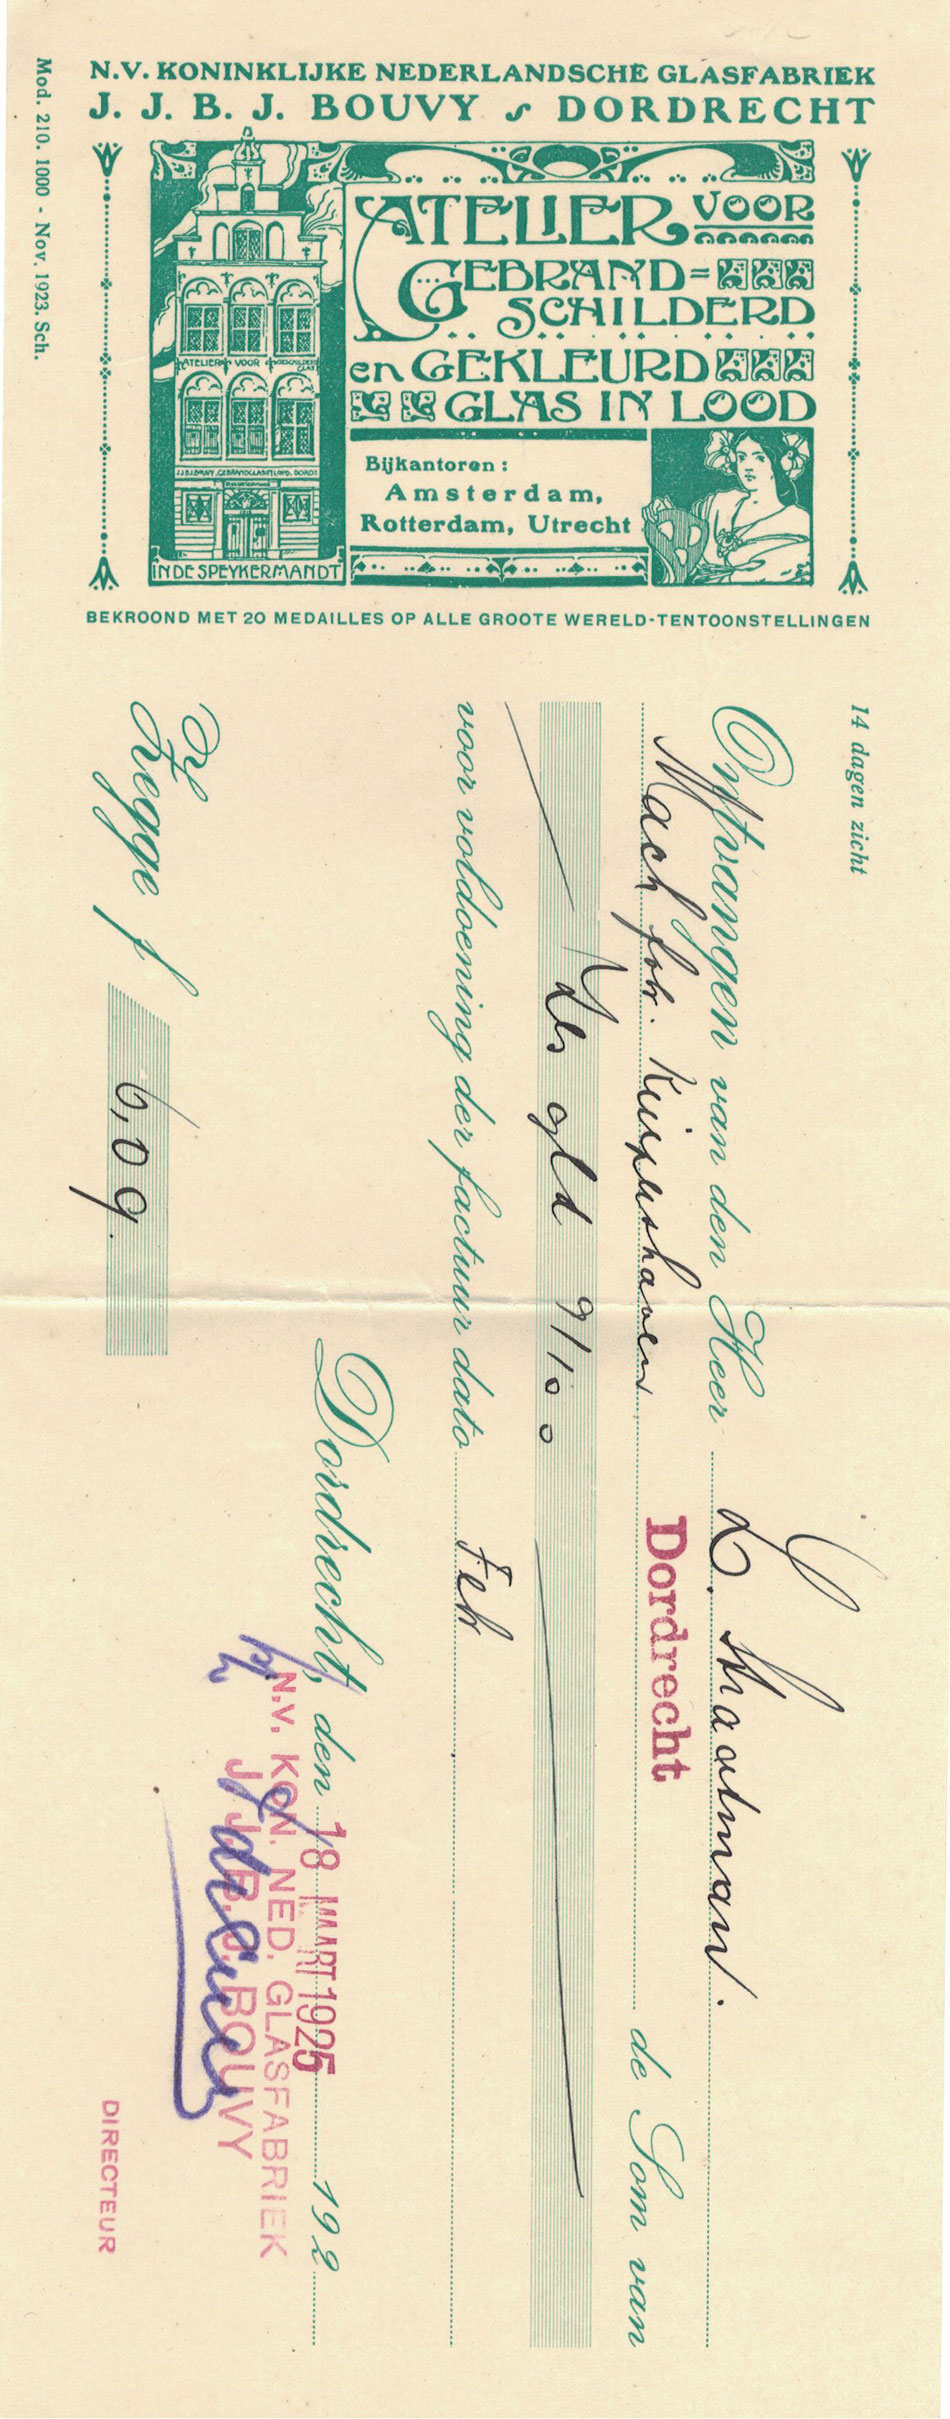 N.V. KONINKLIJKE NEDERLANDSCHE GLASFABRIEK
J. J. B. J. BOUVY DORDRECHT
Mod. 210. 1000 - Nov. 1923. Sch.
ATELIER VOOR
GEBRAND=
SCHILDERD
en GEKLEURD
GLAS IN LOOD
ATELIER VOOR
Bijkantoren:
Amsterdam,
Rotterdam, Utrecht
IN DE SPEYKERMANDT
BEKROOND MET 20 MEDAILLES OP ALLE GROOTE WERELD-TENTOONSTELLINGEN
14 dagen zicht
Ontvangen van den Heer L. Straatman.
Mach fbr. Kuipershaven Dordrecht de Som van
Zes gld 9/100
voor voldoening der factuur dato Feb
Dordrecht, den 18 MAART 1925 192
N.V. KON. NED. GLASFABRIEK
J. J. B. J. BOUVY
Zegge f 6,09
DIRECTEUR